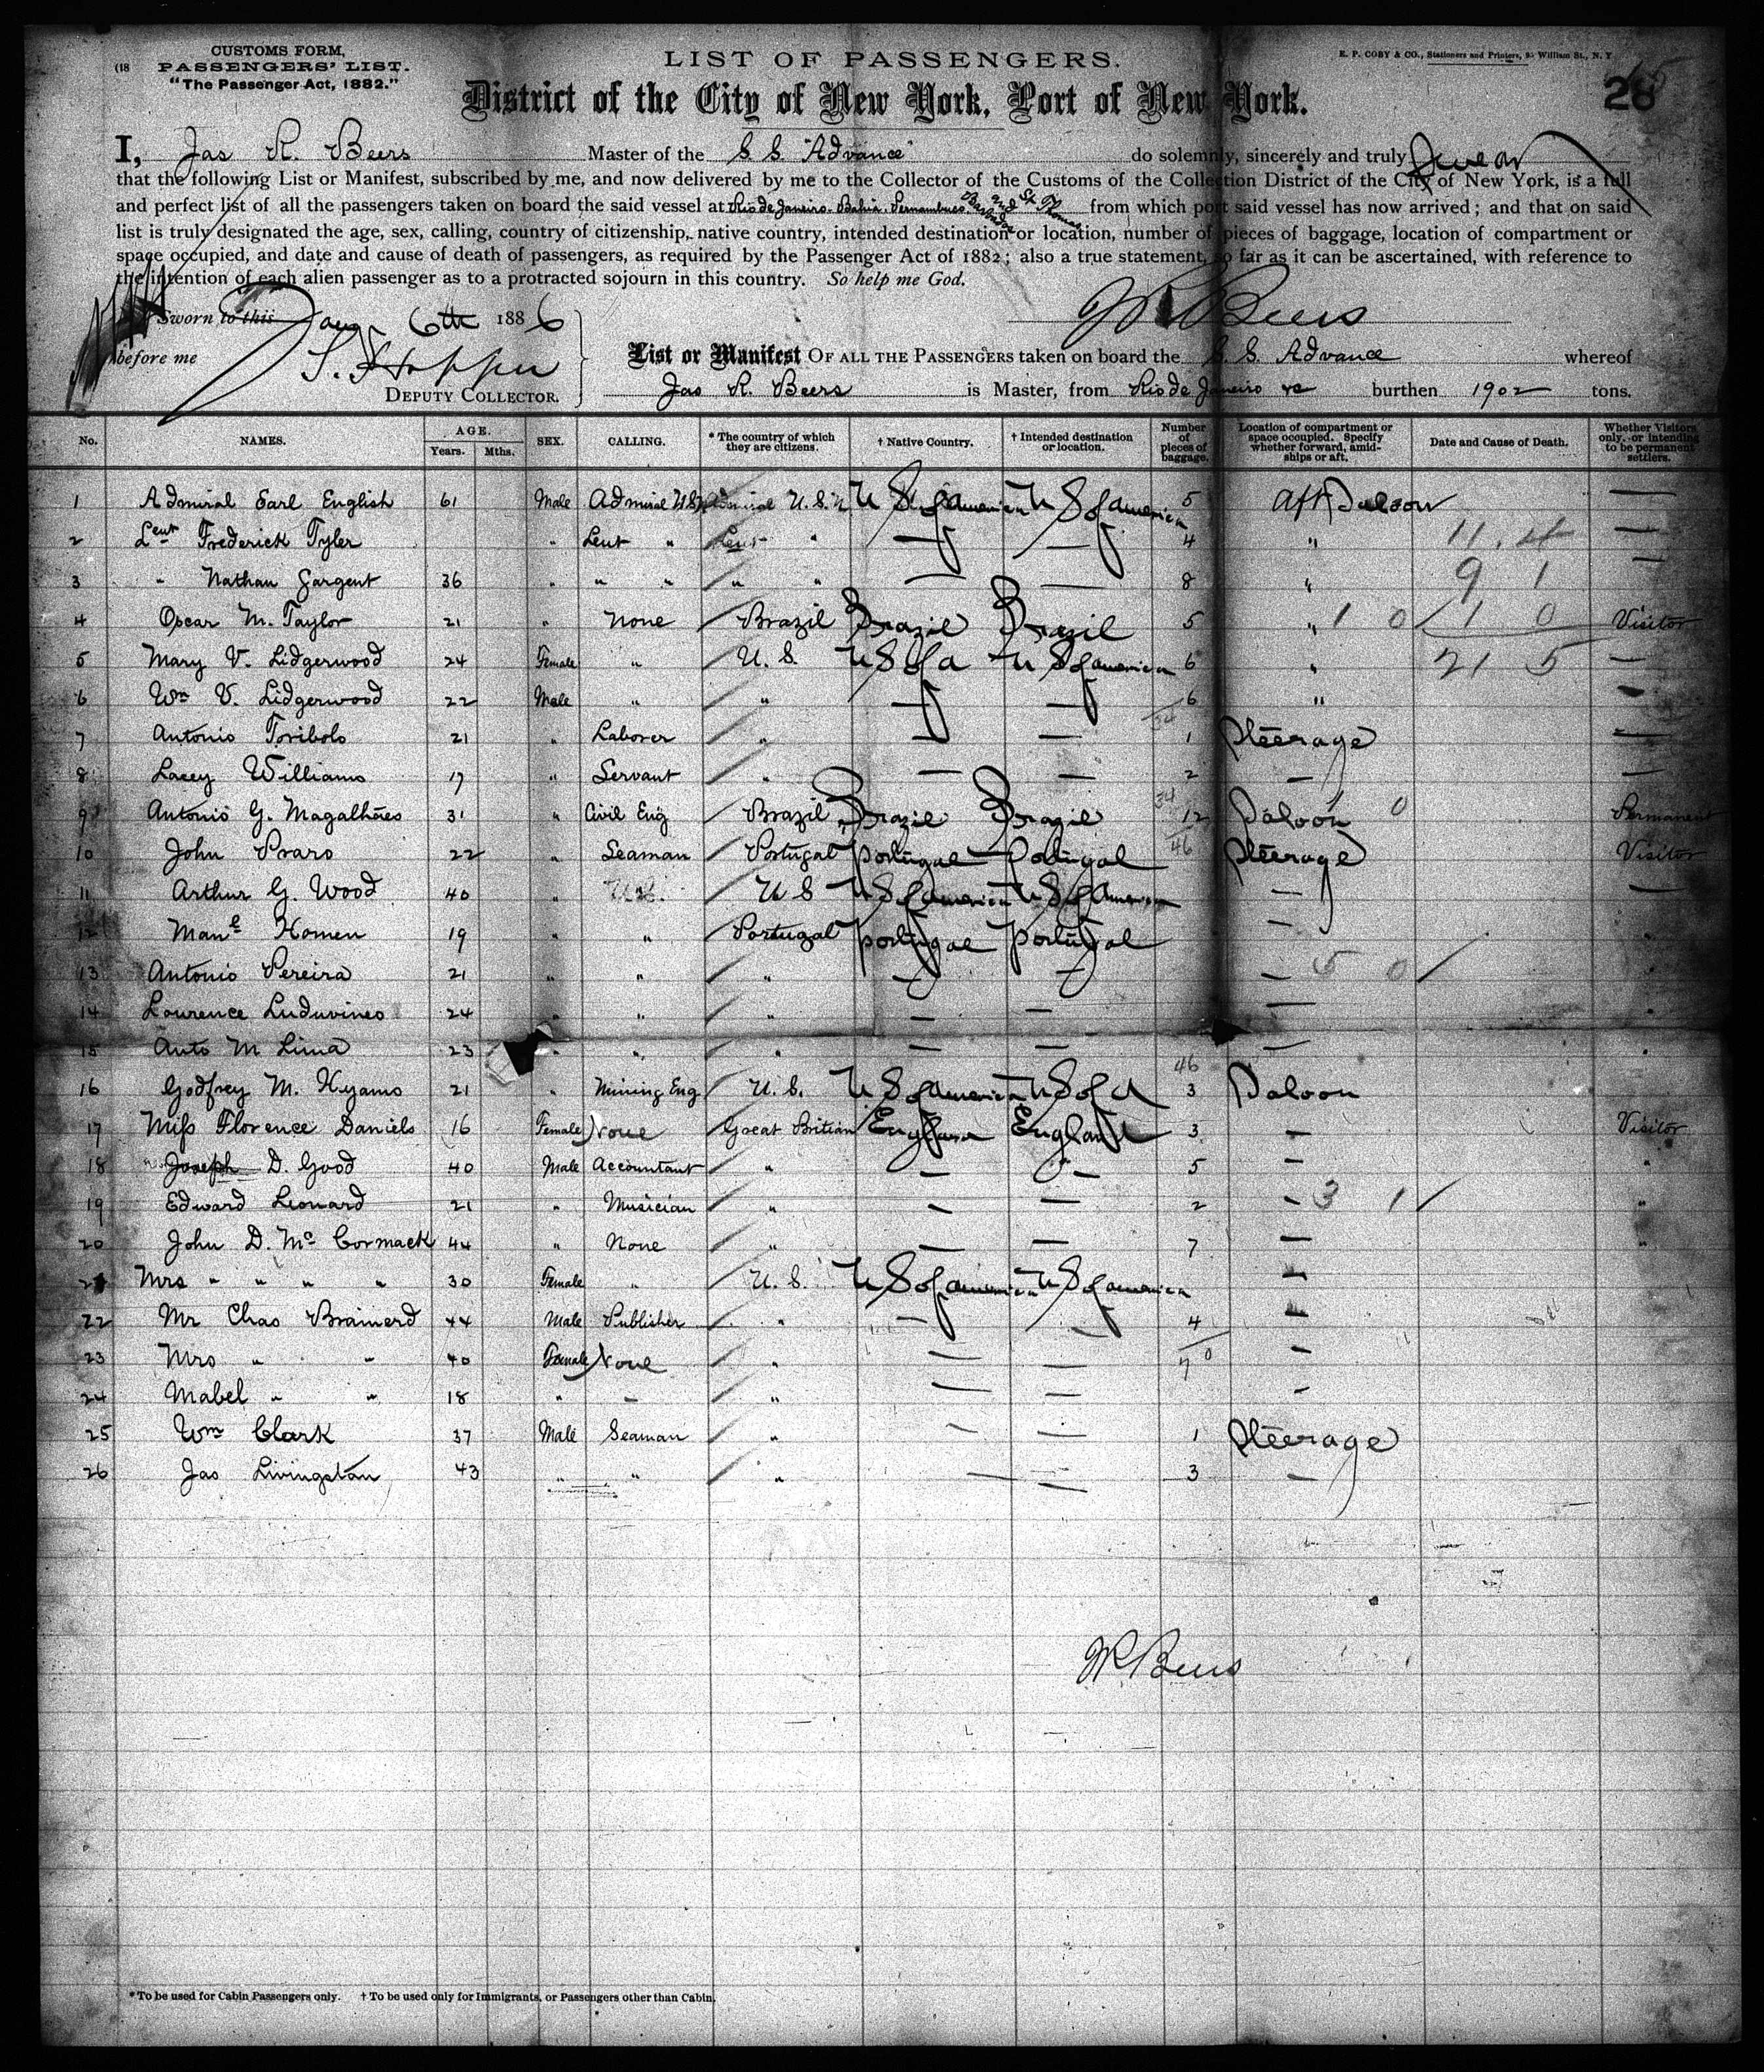 CUSTOMS FORM.
(18 PASSENGERS' LIST.
"The Passenger Act, 1882."
LIST OF PASSENGERS.
E. P. COBY & CO., Stationers and Printers, William St., N. Y
District of the City of New York, Port of New York.
28
I, Jas R. Beers Master of the S. S. "Advance" do solemnly, sincerely and truly swear
that the following List or Manifest, subscribed by me, and now delivered by me to the Collector of the Customs of the Collection District of the City of New York, is a full
and perfect list of all the passengers taken on board the said vessel at Rio de Janeiro. Bahia. Pernambuco. Barbados and St. Thomas from which port said vessel has now arrived; and that on said
list is truly designated the age, sex, calling, country of citizenship, native country, intended destination or location, number of pieces of baggage, location of compartment or
space occupied, and date and cause of death of passengers, as required by the Passenger Act of 1882; also a true statement, so far as it can be ascertained, with reference to
the intention of each alien passenger as to a protracted sojourn in this country. So help me God.
Sworn to this Jany 6th 1886
J R Beers
before me
DEPUTY COLLECTOR.
List or Manifest OF ALL THE PASSENGERS taken on board the S. S. Advance whereof
Jas R. Beers is Master, from Rio de Janeiro &c burthen 1902 tons.
No. NAMES. AGE. Years. Mths. SEX. CALLING. * The country of which they are citizens. † Native Country. † Intended destination or location. Number of pieces of baggage. Location of compartment or space occupied. Specify whether forward, amidships or aft. Date and Cause of Death. Whether Visitors only, or intending to be permanent settlers.
1 Admiral Earl English 61 Male Admiral U.S.N. Admiral U.S.N. U S of America U S of America 5 Aft Saloon —
2 Leut Frederick Tyler " Leut " Leut " — — 4 " 11. 4 —
3 " Nathan Sargent 36 " " " " " — — 8 " 9 1 —
4 Oscar M. Taylor 21 " None Brazil Brazil Brazil 5 " 1 0 1 0 Visitor
5 Mary V. Lidgerwood 24 Female " U. S. U S of A U S of America 6 " 21 5 —
6 Wm V. Lidgerwood 22 Male " " — — 6 " -
7 Antonio Toribolo 21 " Laborer " — — 1 Steerage —
8 Lacey Williams 17 " Servant " — — 2 — —
9 Antonio G. Magalhães 31 " Civil Eng Brazil Brazil Brazil 12 Saloon 0 Permanent
10 John Praro 22 " Seaman Portugal Portugal Portugal Steerage Visitor
11 Arthur G. Wood 40 " U S U S of America U S of America — —
12 Manl Homen 19 " " Portugal Portugal Portugal — "
13 Antonio Pereira 21 " " " — — — 5 0 "
14 Lourence Luduvineo 24 " " " — — —
15 Anto M Lima 23 " " " — — — "
16 Godfrey M. Hyams 21 " Mining Eng U. S. U S of America U S of A 3 Saloon
17 Miss Florence Daniels 16 Female None Great Britian England England 3 — Visitor
18 Joseph D. Good 40 Male Accountant " — — 5 — "
19 Edward Leonard 21 " Musician " — — 2 — 3 1 "
20 John D. McCormack 44 " None " — — 7 — "
21 Mrs " " " " 30 Female " U. S. U S of America U S of America —
22 Mr Chas Brainerd 44 Male Publisher " — — 4 —
23 Mrs " " 40 Female None " — — —
24 Mabel " " 18 " - " — — -
25 Wm Clark 37 Male Seaman " — — 1 Steerage
26 Jas Livingstan 43 " " " — — 3 —
J R Beers
* To be used for Cabin Passengers only. † To be used only for Immigrants, or Passengers other than Cabin.